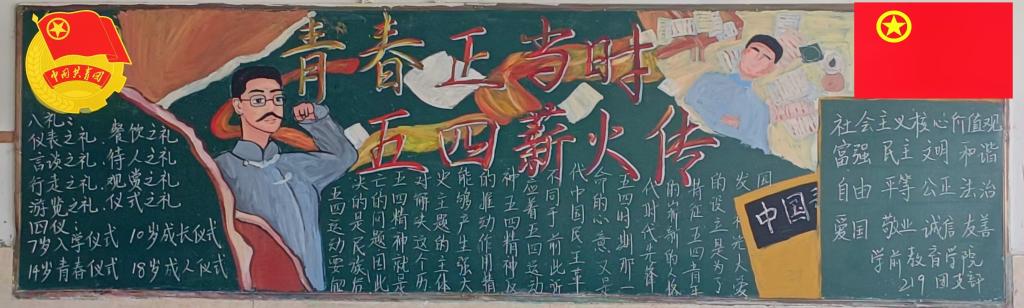 中国共青团
青春正当时
五四薪火传
八礼：
仪表之礼.餐饮之礼
言谈之礼.待人之礼
行走之礼.观赏之礼
游览之礼.仪式之礼
四仪
7岁入学仪式 10岁成长仪式
14岁青春仪式 18岁成人仪式
五四运动要解
决的是民族救
亡的问题因此
五四精神就是
对解决这个历
史主题的主体
能够产生强大
的推动作用精
神五四精神
应着五四运动
不同于前此所
代中国民主革
命的心意义是
五四时期那一
代时代先锋
的崭新的人格
特征五四青
的设立是为了
发 光大
因
中国
社会主义核心价值观
富强 民主 文明 和谐
自由 平等 公正 法治
爱国 敬业 诚信 友善
学前教育学院
219团支部